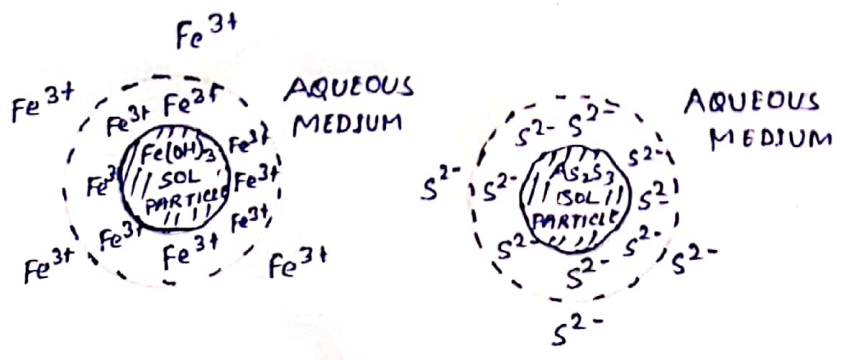 Fe³⁺
Fe³⁺
Fe³⁺ Fe³⁺
AQUEOUS
MEDIUM
Fe³⁺
Fe(OH)₃
SOL
PARTICLE
Fe³
Fe³⁺
Fe³⁺
Fe³⁺
Fe³⁺
Fe³⁺
Fe³⁺
S²⁻ S²⁻
AQUEOUS
MEDIUM
S²⁻
As₂S₃
SOL
PARTICLE
S²⁻
S²⁻
S²⁻
S²⁻
S²⁻
S²⁻
S²⁻
S²⁻